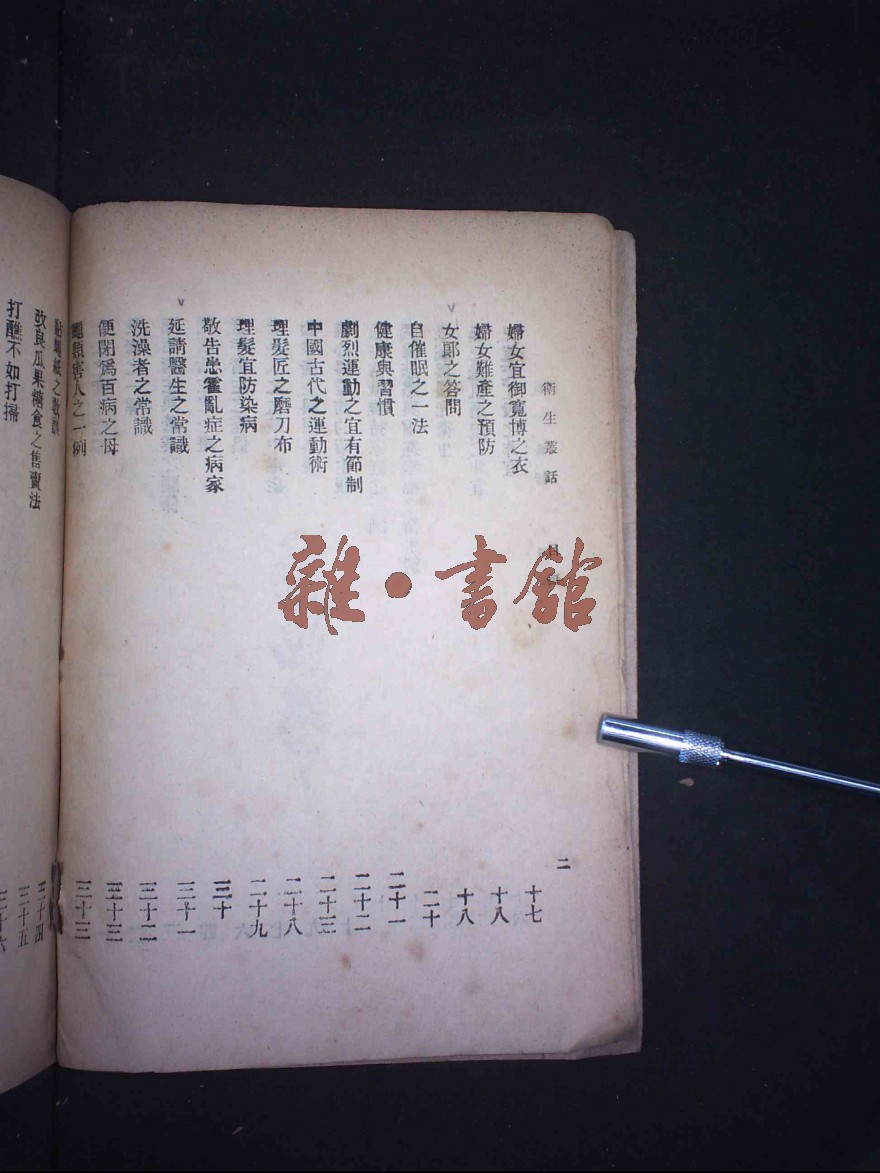 衛生叢話 目 二
婦女宜御寬博之衣 十七
婦女難產之預防 十八
女郎之答問 十八
自催眠之一法 二十
健康與習慣 二十一
劇烈運動之宜有節制 二十二
中國古代之運動術 二十三
理髮匠之磨刀布 二十八
理髮宜防染病 二十九
敬告患霍亂症之病家 三十
延請醫生之常識 三十一
洗澡者之常識 三十二
便閉爲百病之母 三十三
蠅類害人之一例 三十三
三十四
改良瓜果糖食之售賣法 三十五
打醮不如打掃 三十六
雜·書館